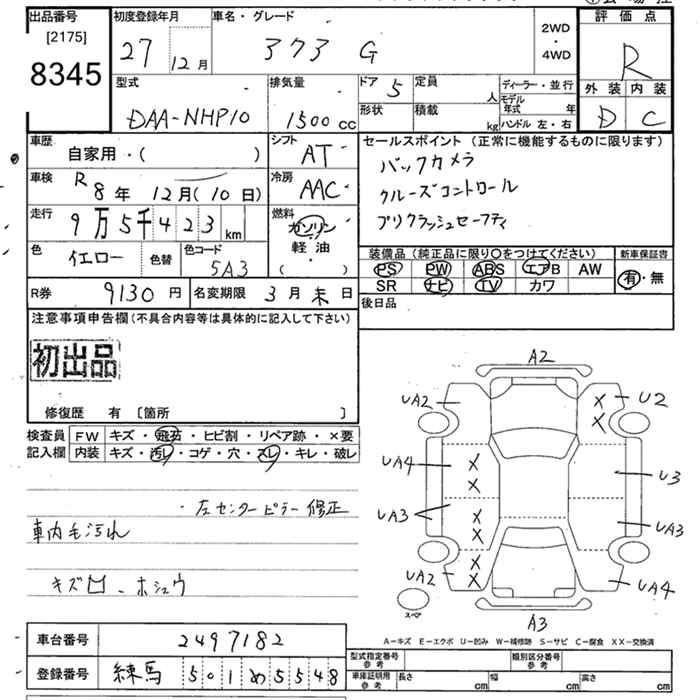 出品番号
[2175]
8345
初度登録年月
27 12月
車名・グレード
アクア G
2WD
・
4WD
評価点
R
外装 内装
D C
型式
DAA-NHP10
排気量
1500cc
ドア 5
形状
定員 人
積載 kg
ディーラー・並行
モデル年式 年
ハンドル 左・右
車歴
自家用・( )
シフト
AT
車検
R8年 12月(10日)
冷房
AAC
走行
9万5千423km
燃料
ガソリン
軽油
( )
色
イエロー
色替
色コード
5A3
セールスポイント(正常に機能するものに限ります)
バックカメラ
クルーズコントロール
プリクラッシュセーフティ
装備品(純正品に限り〇をつけてください)
PS PW ABS エアB AW
SR ナビ TV カワ
新車保証書
有・無
R券 9130円
名変期限 3月末日
後日品
注意事項申告欄(不具合内容等は具体的に記入して下さい)
初出品
修復歴 有 〔箇所 〕
検査員
記入欄
FW キズ・飛石・ヒビ割・リペア跡・×要
内装 キズ・汚れ・コゲ・穴・スレ・キレ・破レ
・左センターピラー修正
車内毛汚れ
キズ凹、ホシュウ
A2
UA2
U2
UA4
U3
UA3
UA3
UA2
UA4
スペア
A3
A-キズ E-エクボ U-凹み W-補修跡 S-サビ C-腐食 XX-交換済
車台番号 2497182
登録番号 練馬 501 め 5548
型式指定番号
参考
類別区分番号
参考
車庫証明用
参考
長さ cm
幅 cm
高さ cm